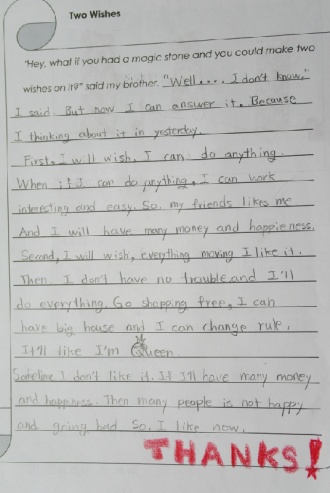 Two Wishes
"Hey, what if you had a magic stone and you could make two
wishes on it?" said my brother. "Well.... I don't know."
I said. But now I can answer it. Because
I thinking about it in yesterday.
First, I will wish, I can do anything.
When it I can do anything, I can work
interesting and easy. So, my friends likes me
And I will have many money and happieness.
Second, I will wish, everything moving I like it.
Then, I don't have no trouble and I'll
do everything. Go shopping free, I can
have big house and I can change rule,
It'll like I'm Queen
Sometime I don't like it. If I'll have many money
and happiness. Then many people is not happy
and going bad So, I like now.
THANKS!